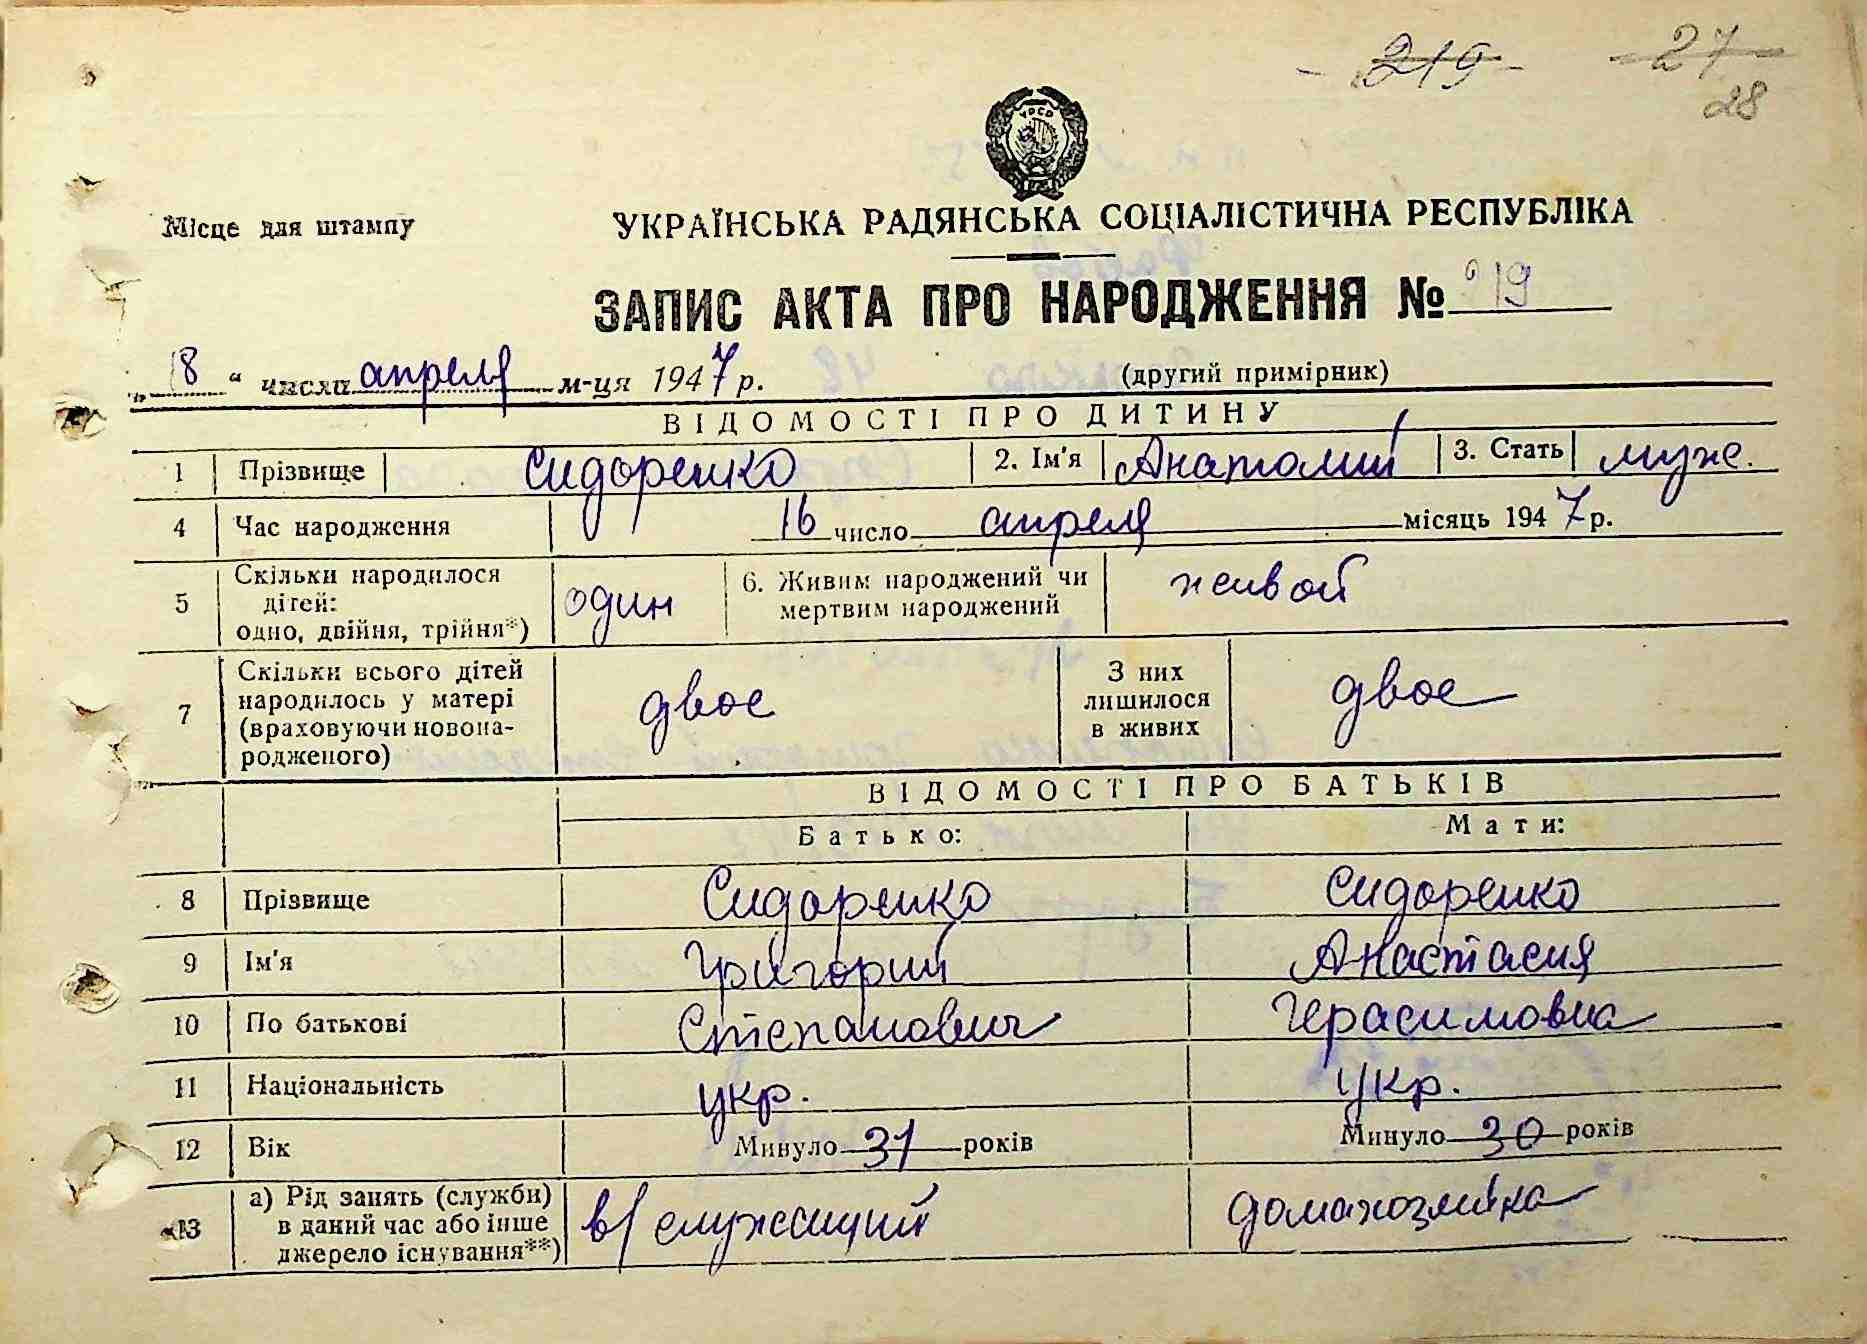 219 27
28
УРСР
Місце для штампу
УКРАЇНСЬКА РАДЯНСЬКА СОЦІАЛІСТИЧНА РЕСПУБЛІКА
ЗАПИС АКТА ПРО НАРОДЖЕННЯ № 219
„18“ числа апреля м-ця 1947 р. (другий примірник)
ВІДОМОСТІ ПРО ДИТИНУ
1 Прізвище Сидоренко 2. Ім'я Анатолий 3. Стать муже.
4 Час народження 16 число апреля місяць 1947 р.
5 Скільки народилося
дітей:
одно, двійня, трійня*) один 6. Живим народжений чи
мертвим народжений живой
7 Скільки всього дітей
народилось у матері
(враховуючи новона-
родженого) двое З них
лишилося
в живих двое
ВІДОМОСТІ ПРО БАТЬКІВ
Батько: Мати:
8 Прізвище Сидоренко Сидоренко
9 Ім'я Григорий Анастасия
10 По батькові Степанович Герасимовна
11 Національність укр. укр.
12 Вік Минуло 31 років Минуло 30 років
13 а) Рід занять (служби)
в даний час або інше
джерело існування**) в/служащий домахозяйка